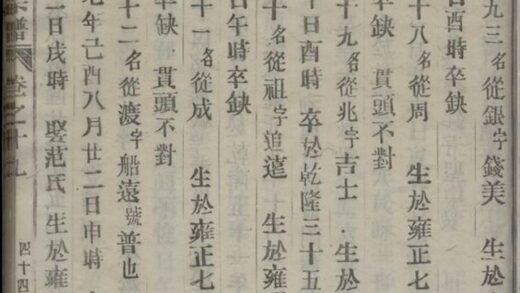 九三名從銀字錢美 生於
日酉時卒缺
十八名從周 生於雍正七
卒缺 貫頭不對
十九名從兆字吉士 生於
十日酉時 卒於乾隆三十五
二十名從祖字追遠 生於
日午時卒缺
十一名從成 生於雍正七
年缺 貫頭不對
十二名從渡字船遠號普也
七年己酉八月廿二日申時
二日戌時 娶范氏 生於雍
宗譜 卷之十九 四十四